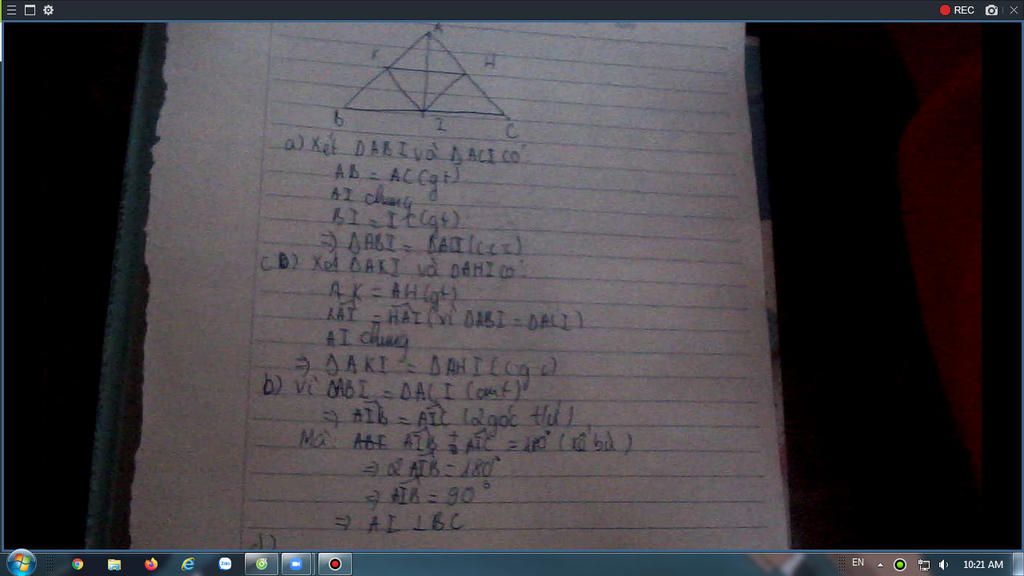 REC
A
K
H
B
I
C
a) Xét ΔABI và ΔACI có:
AB = AC (gt)
AI chung
BI = IC (gt)
=> ΔABI = ΔACI (c c c)
c) Xét ΔAKI và ΔAHI có:
AK = AH (gt)
KAI = HAI (vì ΔABI = ΔACI)
AI chung
=> ΔAKI = ΔAHI (c g c)
b) Vì ΔABI = ΔACI (cmt)
=> AIB = AIC (2 góc t/ư)
Mà: AIB + AIC = 180° (kề bù)
=> 2 AIB = 180°
=> AIB = 90°
=> AI ⊥ BC
d)
EN
10:21 AM